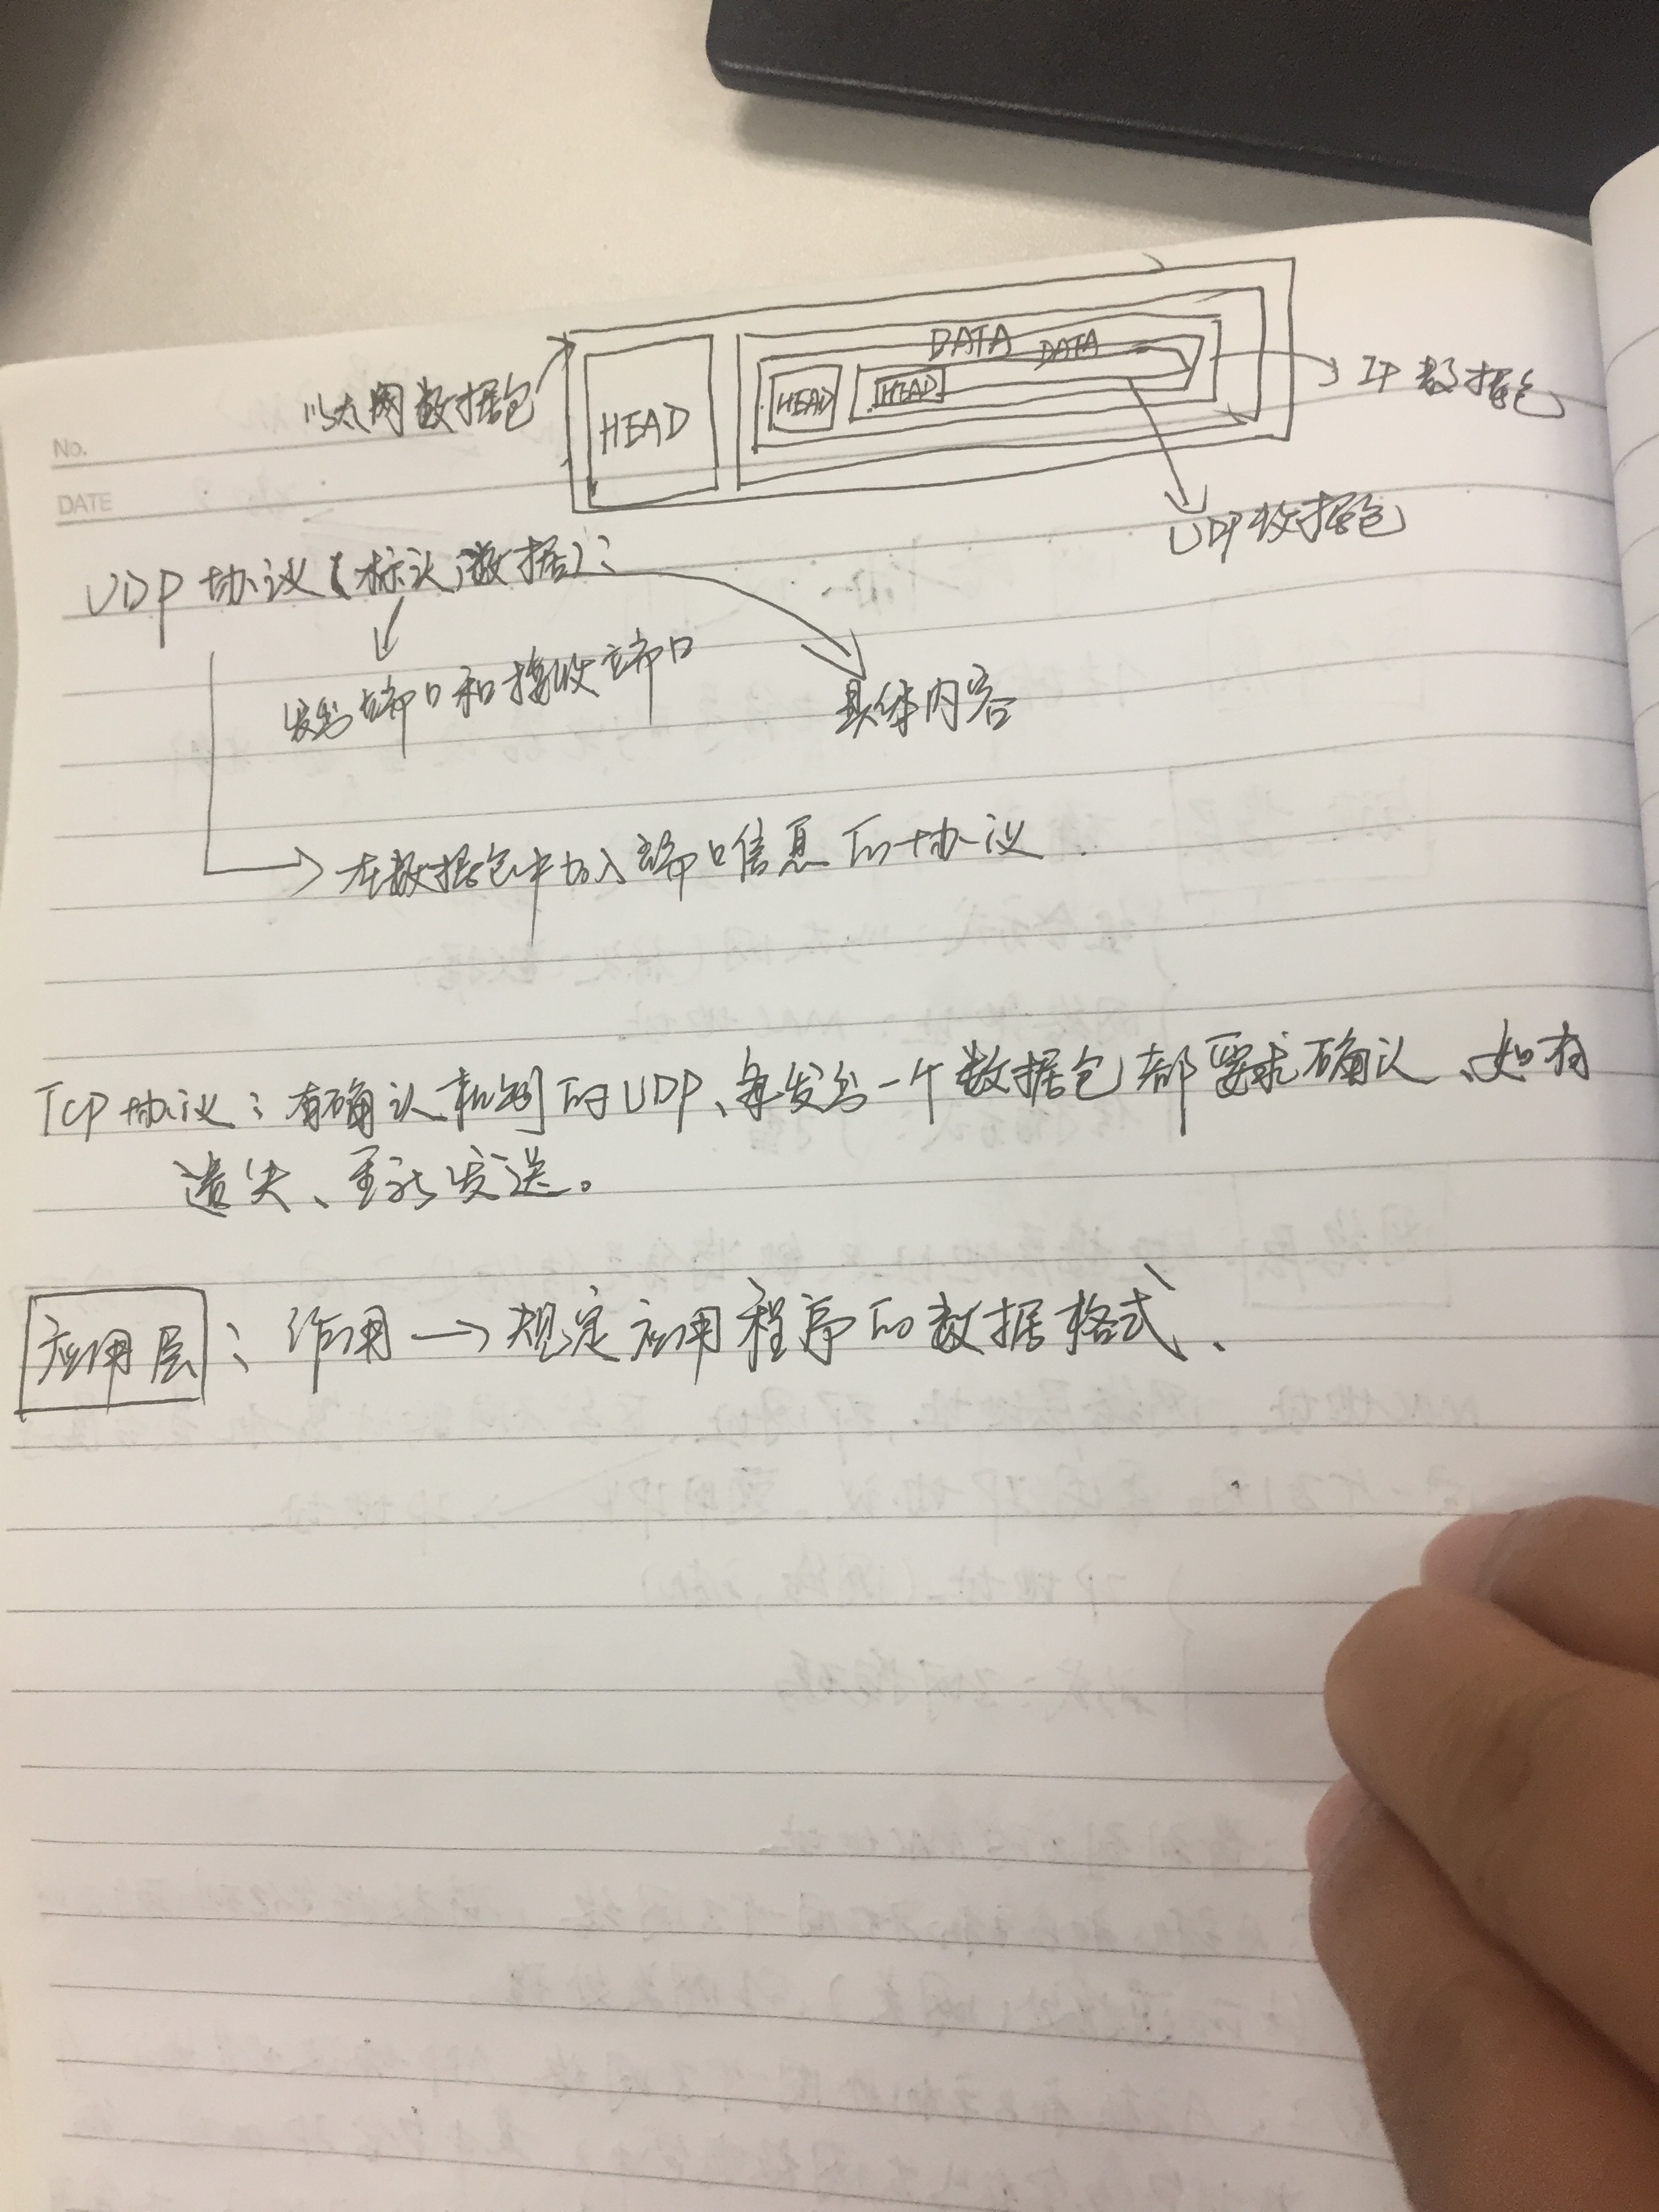 DATA
DATA
以太网数据包
HEAD
HEAD
HEAD
IP数据包
No.
DATE
UDP数据包
UDP协议(标认,数据):
发出端口和接收端口
具体内容
在数据包中加入端口信息的协议.
TCP协议:有确认机制的UDP、每发出一个数据包都要求确认、如有
遗失、重新发送。
应用层:作用→规定应用程序的数据格式、